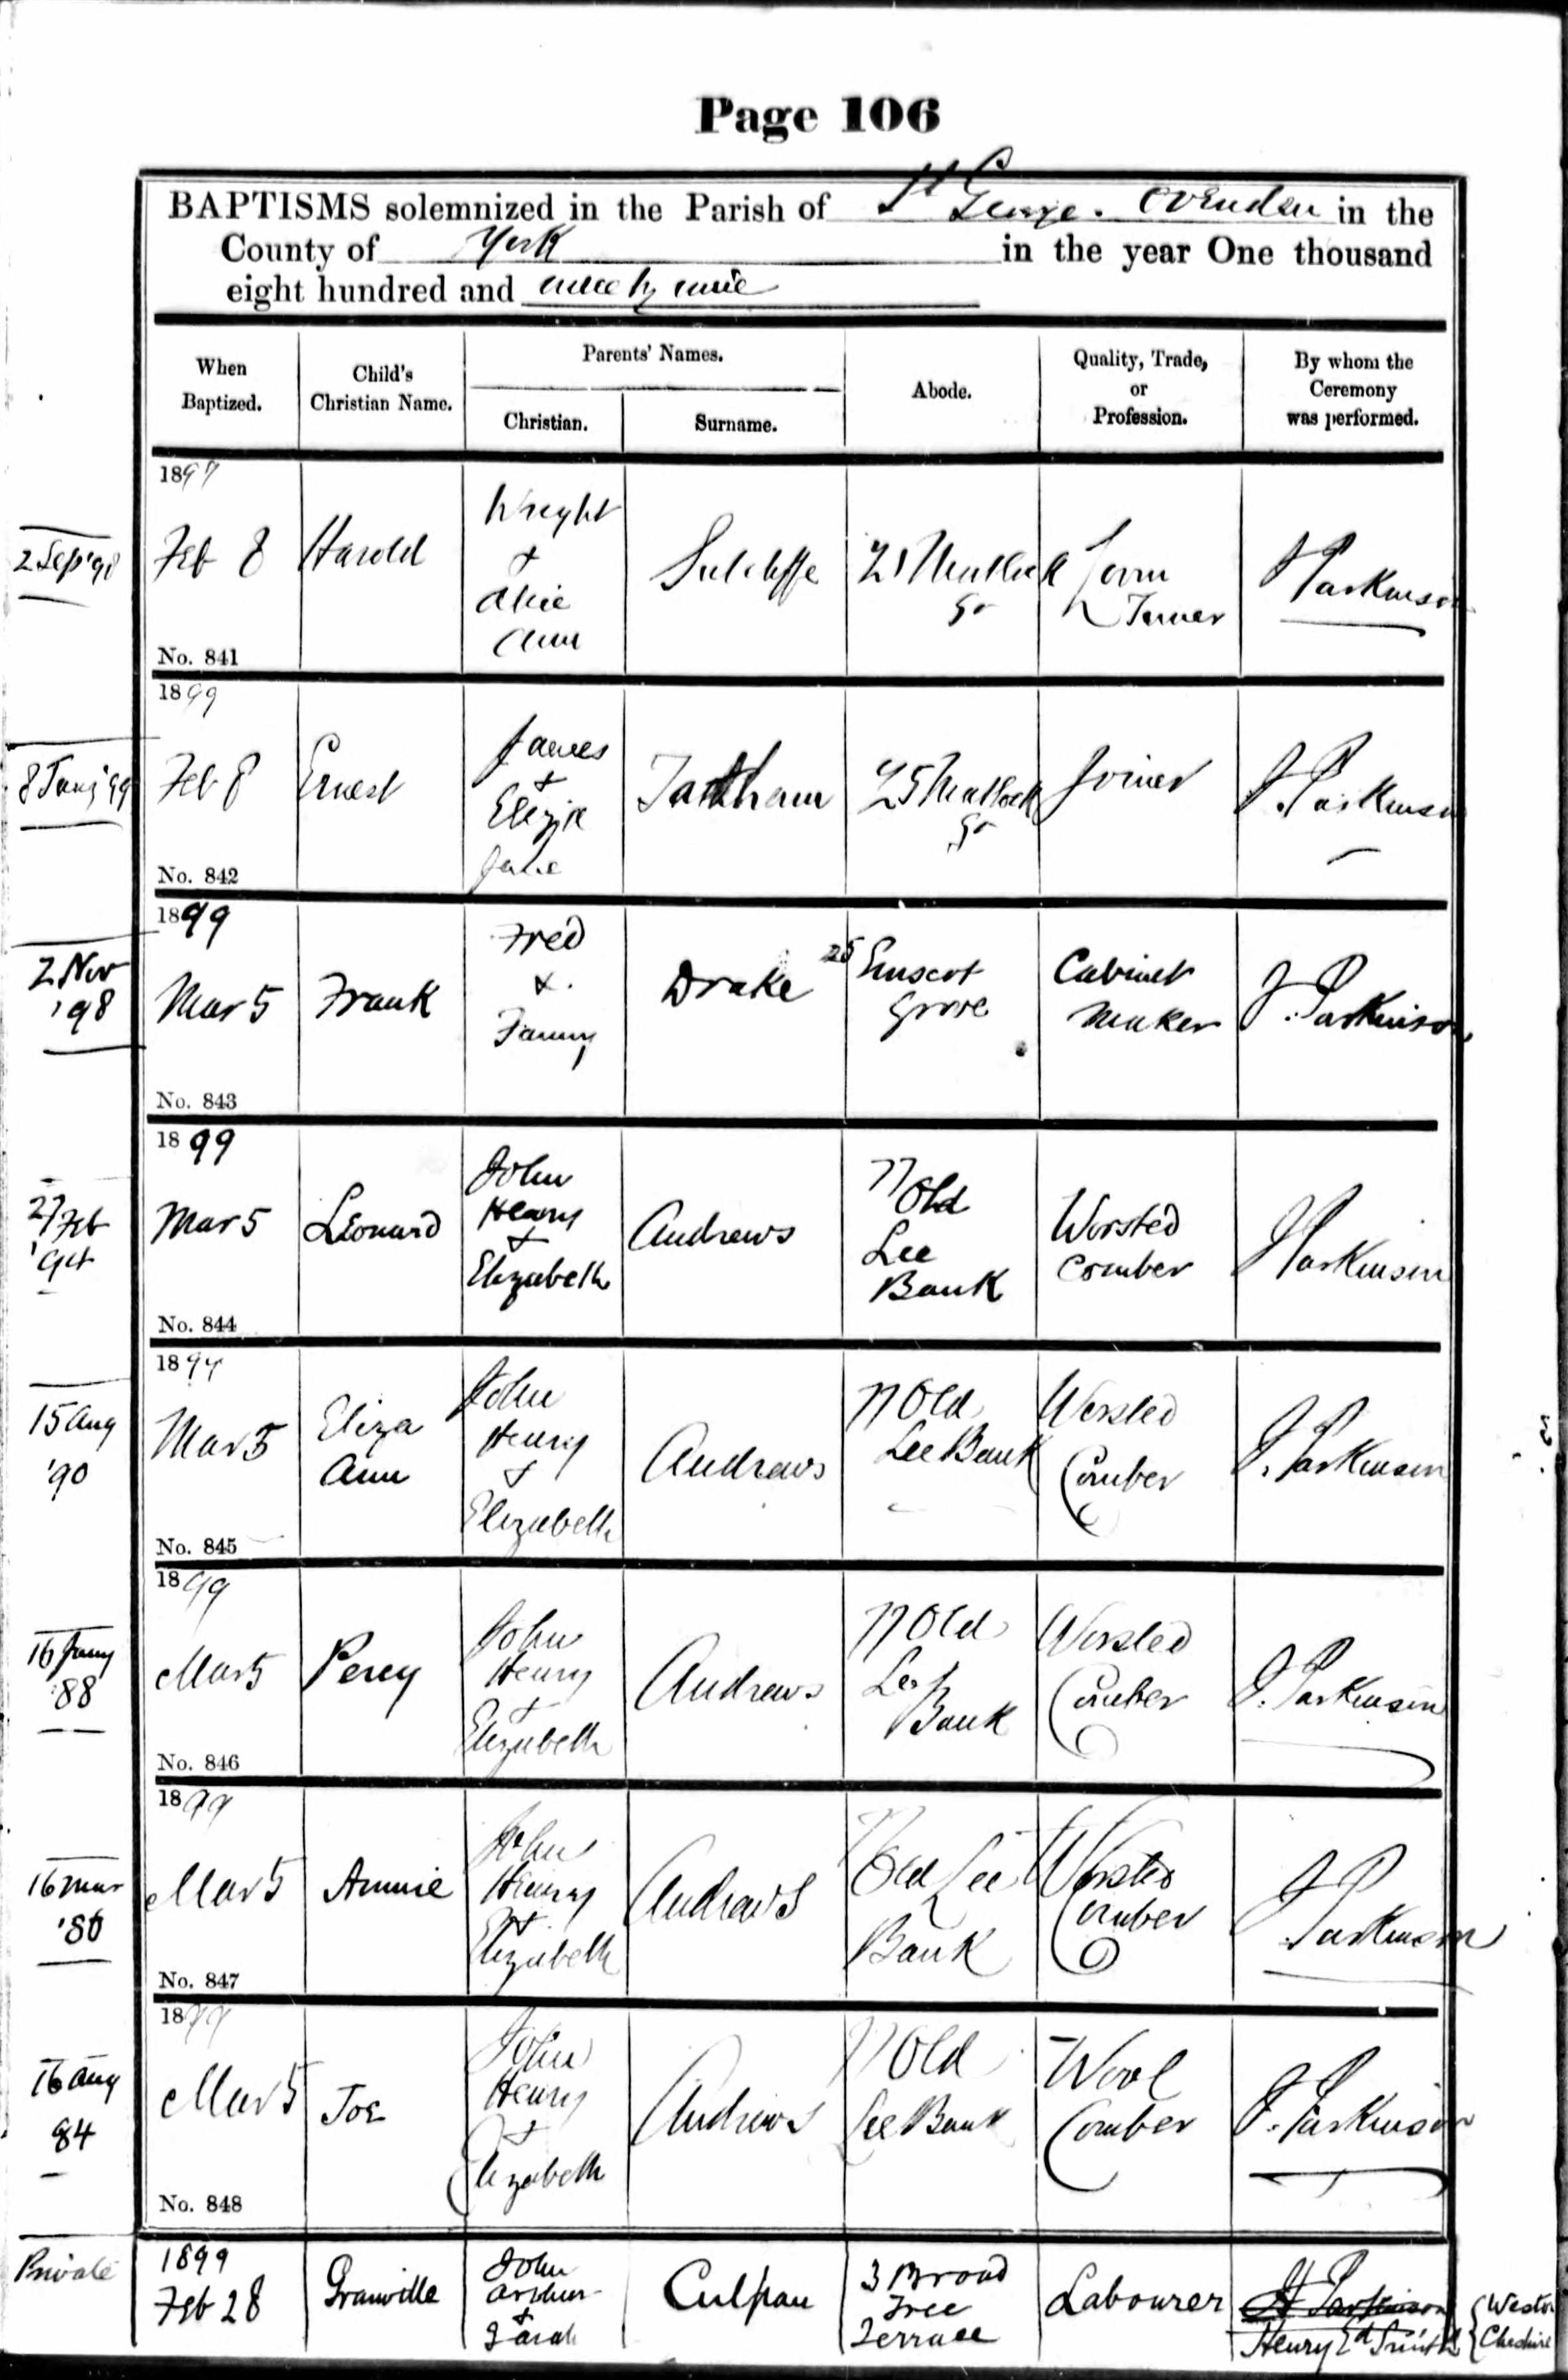 Page 106
BAPTISMS solemnized in the Parish of St George. Ovenden in the
County of York in the year One thousand
eight hundred and ninety nine
When
Baptized.
Child's
Christian Name.
Parents' Names.
Christian.
Surname.
Abode.
Quality, Trade,
or
Profession.
By whom the
Ceremony
was performed.
2 Sep '98
1899
Feb 8
No. 841
Harold
Wright
+
Alice
Ann
Sutcliffe
21 Matlock
Gr
Loom
Tuner
J Parkinson
8 Jany '99
1899
Feb 8
No. 842
Ernest
James
+
Eliza
Jane
Tattham
25 Matlock
Gr
Joiner
J. Parkinson
2 Nov
'98
1899
Mar 5
No. 843
Frank
Fred
&.
Fanny
Drake
25
Grove
Cabinet
Maker
J. Parkinson
27 Feb
'94
1899
Mar 5
No. 844
Leonard
John
Henry
+
Elizabeth
Andrews
77 Old
Lee
Bank
Worsted
Comber
J Parkinson
15 Aug
'90
1899
Mar 5
No. 845
Eliza
Ann
John
Henry
+
Elizabeth
Andrews
77 Old
Lee Bank
Worsted
Comber
J. Parkinson
16 Jany
'88
1899
Mar 5
No. 846
Percy
John
Henry
+
Elizabeth
Andrews
77 Old
Lee
Bank
Worsted
Comber
J. Parkinson
16 Mar
1899
Mar 5
No. 847
Annie
John
Henry
+
Elizabeth
Andrews
Old Lee
Bank
Worsted
Comber
J Parkinson
16 Aug
84
1899
Mar 5
No. 848
Joe
John
Henry
+
Elizabeth
Andrews
77 Old
Lee Bank
Wool
Comber
J. Parkinson
Private
1899
Feb 28
Granville
John
Arthur
+
Sarah
Culpan
3 Broad
Tree
Terrace
Labourer
J Parkinson
Henry Ed Smith
Weston
Cheshire